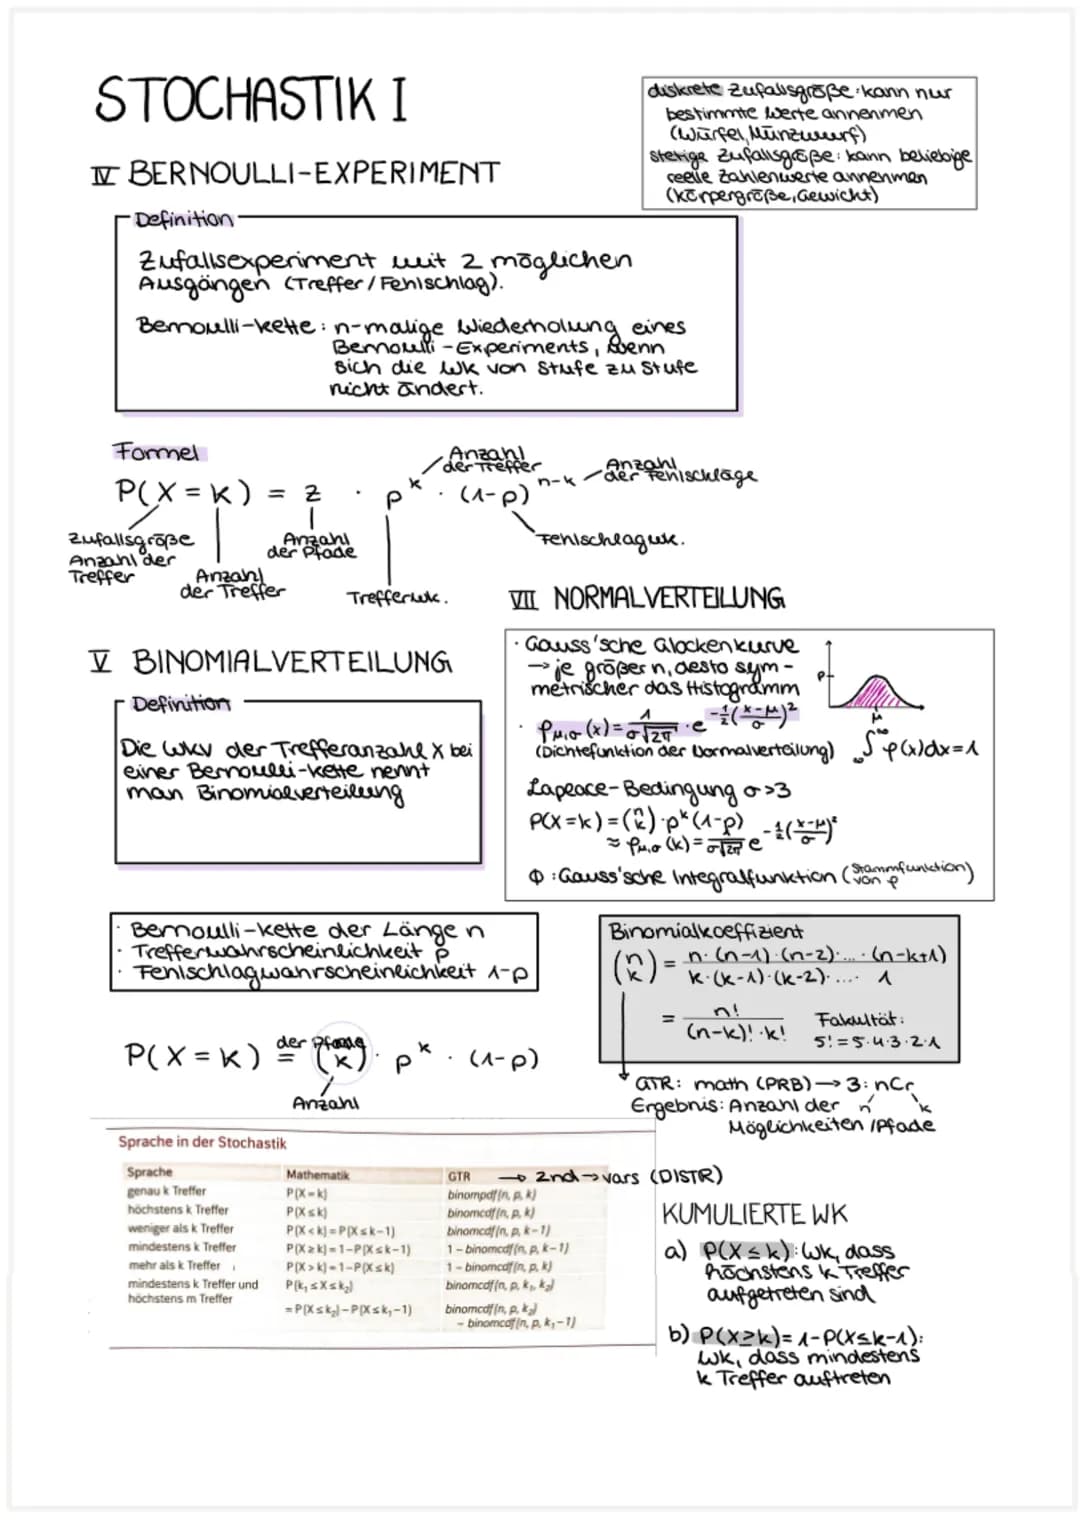 STOCHASTIK I
diskrete Zufallsgröße: kann nur
bestimmte Werte annehmen
(Würfel, Münzwurf)
stetige Zufallsgröße: kann beliebige
reelle Zahlenwerte annehmen
(Körpergröße, Gewicht)
IV BERNOULLI-EXPERIMENT
Definition
Zufallsexperiment mit 2 möglichen
Ausgängen (Treffer/Fehlschlag).
Bernoulli-Kette: n-malige Wiederholung eines
Bernoulli-Experiments, wenn
sich die WK von Stufe zu Stufe
nicht ändert.
Formel
P(X = k) = z · p^k · (1-p)^{n-k}
Anzahl
der Treffer
Anzahl
der Fehlschläge
Zufallsgröße
Anzahl der
Treffer
Anzahl
der Treffer
Anzahl
der Pfade
Trefferwk.
Fehlschlagwk.
V BINOMIALVERTEILUNG
Definition
Die WKV der Trefferanzahl X bei
einer Bernoulli-Kette nennt
man Binomialverteilung
VII NORMALVERTEILUNG
· Gauss'sche Glockenkurve
→ je größer n, desto sym-
metrischer das Histogramm
P
μ
· φ_{μ,σ}(x) = 1/(σ√2π) · e^{-1/2((x-μ)/σ)²}
(Dichtefunktion der Normalverteilung) ∫_{-∞}^{∞} φ(x)dx = 1
Laplace-Bedingung σ>3
P(X=k) = (n k) · p^k (1-p)
≈ φ_{μ,σ}(k) = 1/(σ√2π) e^{-1/2((x-μ)/σ)²}
Φ: Gauss'sche Integralfunktion (Stammfunktion von φ)
· Bernoulli-Kette der Länge n
· Trefferwahrscheinlichkeit p
· Fehlschlagwahrscheinlichkeit 1-p
P(X = k) = (n k) · p^k · (1-p)
der Pfade
Anzahl
Binomialkoeffizient
(n k) = n·(n-1)·(n-2)·...·(n-k+1) / k·(k-1)·(k-2)·... 1
= n! / (n-k)!·k!
Fakultät:
5! = 5·4·3·2·1
GTR: math (PRB) → 3: nCr
Ergebnis: Anzahl der n k
Möglichkeiten /Pfade
Sprache in der Stochastik
Sprache Mathematik GTR → 2nd → vars (DISTR)
genau k Treffer P(X=k) binompdf(n, p, k)
höchstens k Treffer P(X≤k) binomcdf(n, p, k)
weniger als k Treffer P(X<k)=P(X≤k-1) binomcdf(n, p, k-1)
mindestens k Treffer P(X≥k)=1-P(X≤k-1) 1-binomcdf(n, p, k-1)
mehr als k Treffer P(X>k)=1-P(X≤k) 1-binomcdf(n, p, k)
mindestens k Treffer und P(k₁≤X≤k₂) binomcdf(n, p, k₁, k₂)
höchstens m Treffer
=P(X≤k₂)-P(X≤k₁-1) binomcdf(n, p, k₂)
- binomcdf(n, p, k₁-1)
KUMULIERTE WK
a) P(X≤k): WK, dass
höchstens k Treffer
aufgetreten sind
b) P(X≥k)= 1-P(X≤k-1):
WK, dass mindestens
k Treffer auftreten